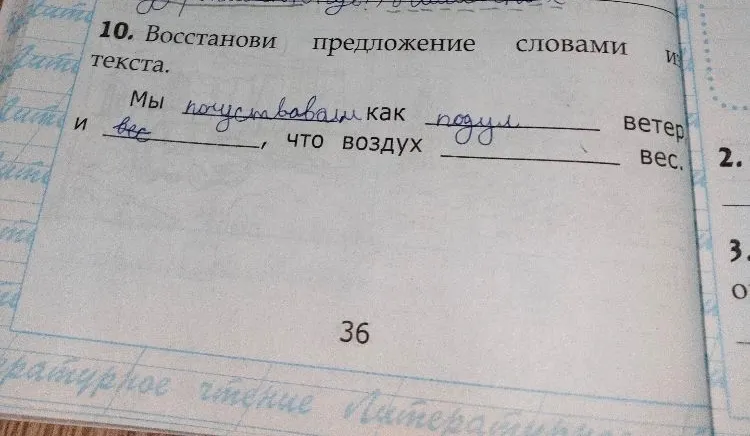 10. Восстанови предложение словами и
текста.
Мы почуствавали как подул ветер
и вес, что воздух вес.
2.
3.
о
36
Литературное чтение Литературное